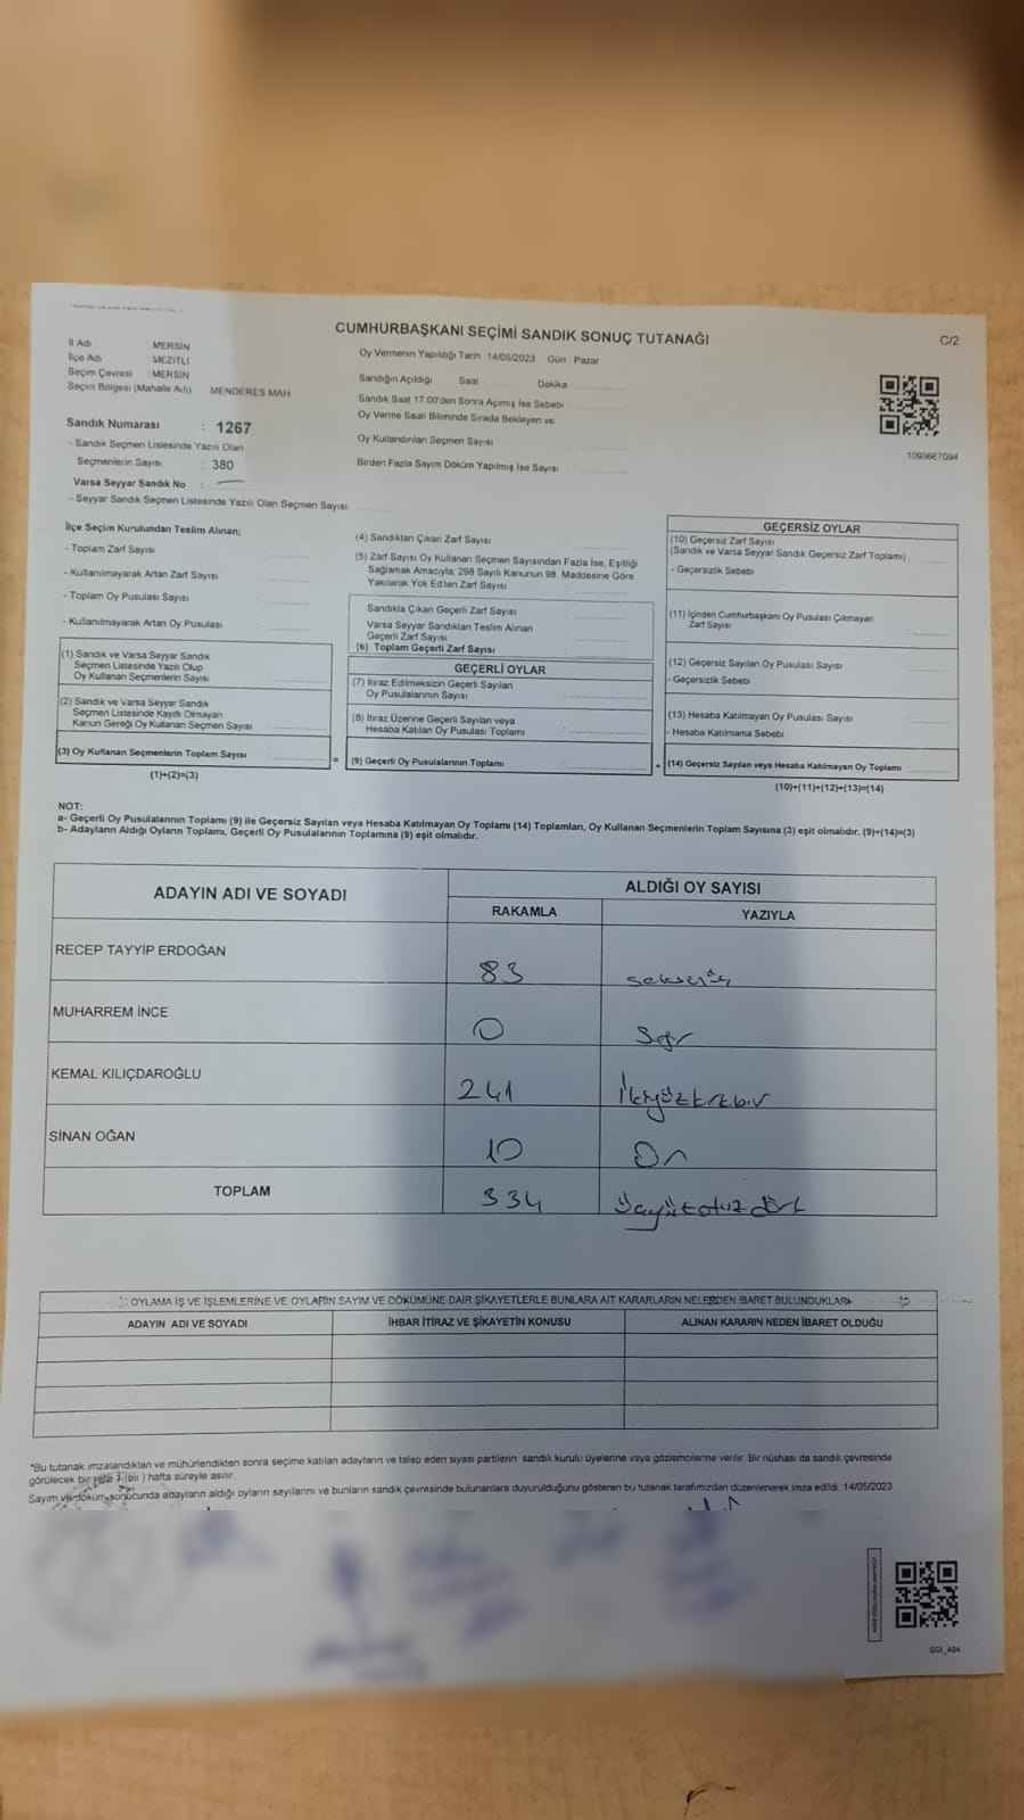 CUMHURBAŞKANI SEÇİMİ SANDIK SONUÇ TUTANAĞI
C/2
İl Adı MERSİN
İlçe Adı MEZİTLİ
Seçim Çevresi : MERSİN
Seçim Bölgesi (Mahalle Adı) MENDERES MAH
Sandık Numarası : 1267
- Sandık Seçmen Listesinde Yazılı Olan
Seçmenlerin Sayısı : 380
Varsa Seyyar Sandık No :
- Seyyar Sandık Seçmen Listesinde Yazılı Olan Seçmen Sayısı
Oy Vermenin Yapıldığı Tarih 14/05/2023 Gün : Pazar
Sandığın Açıldığı Saat Dakika
Sandık Saat 17.00'den Sonra Açılmış İse Sebebi
Oy Verme Saati Bitiminde Sırada Bekleyen ve
Oy Kullandırılan Seçmen Sayısı
Birden Fazla Sayım Döküm Yapılmış İse Sayısı
İlçe Seçim Kurulundan Teslim Alınan;
- Toplam Zarf Sayısı
- Kullanılmayarak Artan Zarf Sayısı
- Toplam Oy Pusulası Sayısı
- Kullanılmayarak Artan Oy Pusulası
(1) Sandık ve Varsa Seyyar Sandık
Seçmen Listesinde Yazılı Olup
Oy Kullanan Seçmenlerin Sayısı
(2) Sandık ve Varsa Seyyar Sandık
Seçmen Listesinde Kayıtlı Olmayan
Kanun Gereği Oy Kullanan Seçmen Sayısı
(3) Oy Kullanan Seçmenlerin Toplam Sayısı
(1)+(2)=(3)
(4) Sandıktan Çıkan Zarf Sayısı
(5) Zarf Sayısı Oy Kullanan Seçmen Sayısından Fazla İse, Eşitliği
Sağlamak Amacıyla, 298 Sayılı Kanunun 98. Maddesine Göre
Yakılarak Yok Edilen Zarf Sayısı
Sandıkta Çıkan Geçerli Zarf Sayısı
Varsa Seyyar Sandıktan Teslim Alınan
Geçerli Zarf Sayısı
(6) Toplam Geçerli Zarf Sayısı
GEÇERLİ OYLAR
(7) İtiraz Edilmeksizin Geçerli Sayılan
Oy Pusulalarının Sayısı
(8) İtiraz Üzerine Geçerli Sayılan veya
Hesaba Katılan Oy Pusulası Toplamı
= (9) Geçerli Oy Pusulalarının Toplamı
GEÇERSİZ OYLAR
(10) Geçersiz Zarf Sayısı
(Sandık ve Varsa Seyyar Sandık Geçersiz Zarf Toplamı)
- Geçersizlik Sebebi
(11) İçinden Cumhurbaşkanı Oy Pusulası Çıkmayan
Zarf Sayısı
(12) Geçersiz Sayılan Oy Pusulası Sayısı
- Geçersizlik Sebebi
(13) Hesaba Katılmayan Oy Pusulası Sayısı
- Hesaba Katılmama Sebebi
+ (14) Geçersiz Sayılan veya Hesaba Katılmayan Oy Toplamı
(10)+(11)+(12)+(13)=(14)
NOT:
a- Geçerli Oy Pusulalarının Toplamı (9) ile Geçersiz Sayılan veya Hesaba Katılmayan Oy Toplamı (14) Toplamları, Oy Kullanan Seçmenlerin Toplam Sayısına (3) eşit olmalıdır. (9)+(14)=(3)
b- Adayların Aldığı Oyların Toplamı, Geçerli Oy Pusulalarının Toplamına (9) eşit olmalıdır.
ADAYIN ADI VE SOYADI ALDIĞI OY SAYISI
RAKAMLA YAZIYLA
RECEP TAYYİP ERDOĞAN 83 seksenüç
MUHARREM İNCE 0 Sıfır
KEMAL KILIÇDAROĞLU 241 İkiyüzkırkbir
SİNAN OĞAN 10 On
TOPLAM 334 Üçyüzotuzdört
OYLAMA İŞ VE İŞLEMLERİNE VE OYLARIN SAYIM VE DÖKÜMÜNE DAİR ŞİKAYETLERLE BUNLARA AİT KARARLARIN NELERDEN İBARET BULUNDUKLARI
ADAYIN ADI VE SOYADI İHBAR İTİRAZ VE ŞİKAYETİN KONUSU ALINAN KARARIN NEDEN İBARET OLDUĞU
*Bu tutanak imzalandıktan ve mühürlendikten sonra seçime katılan adayların ve talep eden siyasi partilerin sandık kurulu üyelerine veya gözlemcilerine verilir. Bir nüshası da sandık çevresinde
görülecek bir yere 1 (bir) hafta süreyle asılır.
Sayım ve döküm sonucunda adayların aldığı oyların sayılarını ve bunların sandık çevresinde bulunanlara duyurulduğunu gösteren bu tutanak tarafımızdan düzenlenerek imza edildi. 14/05/2023